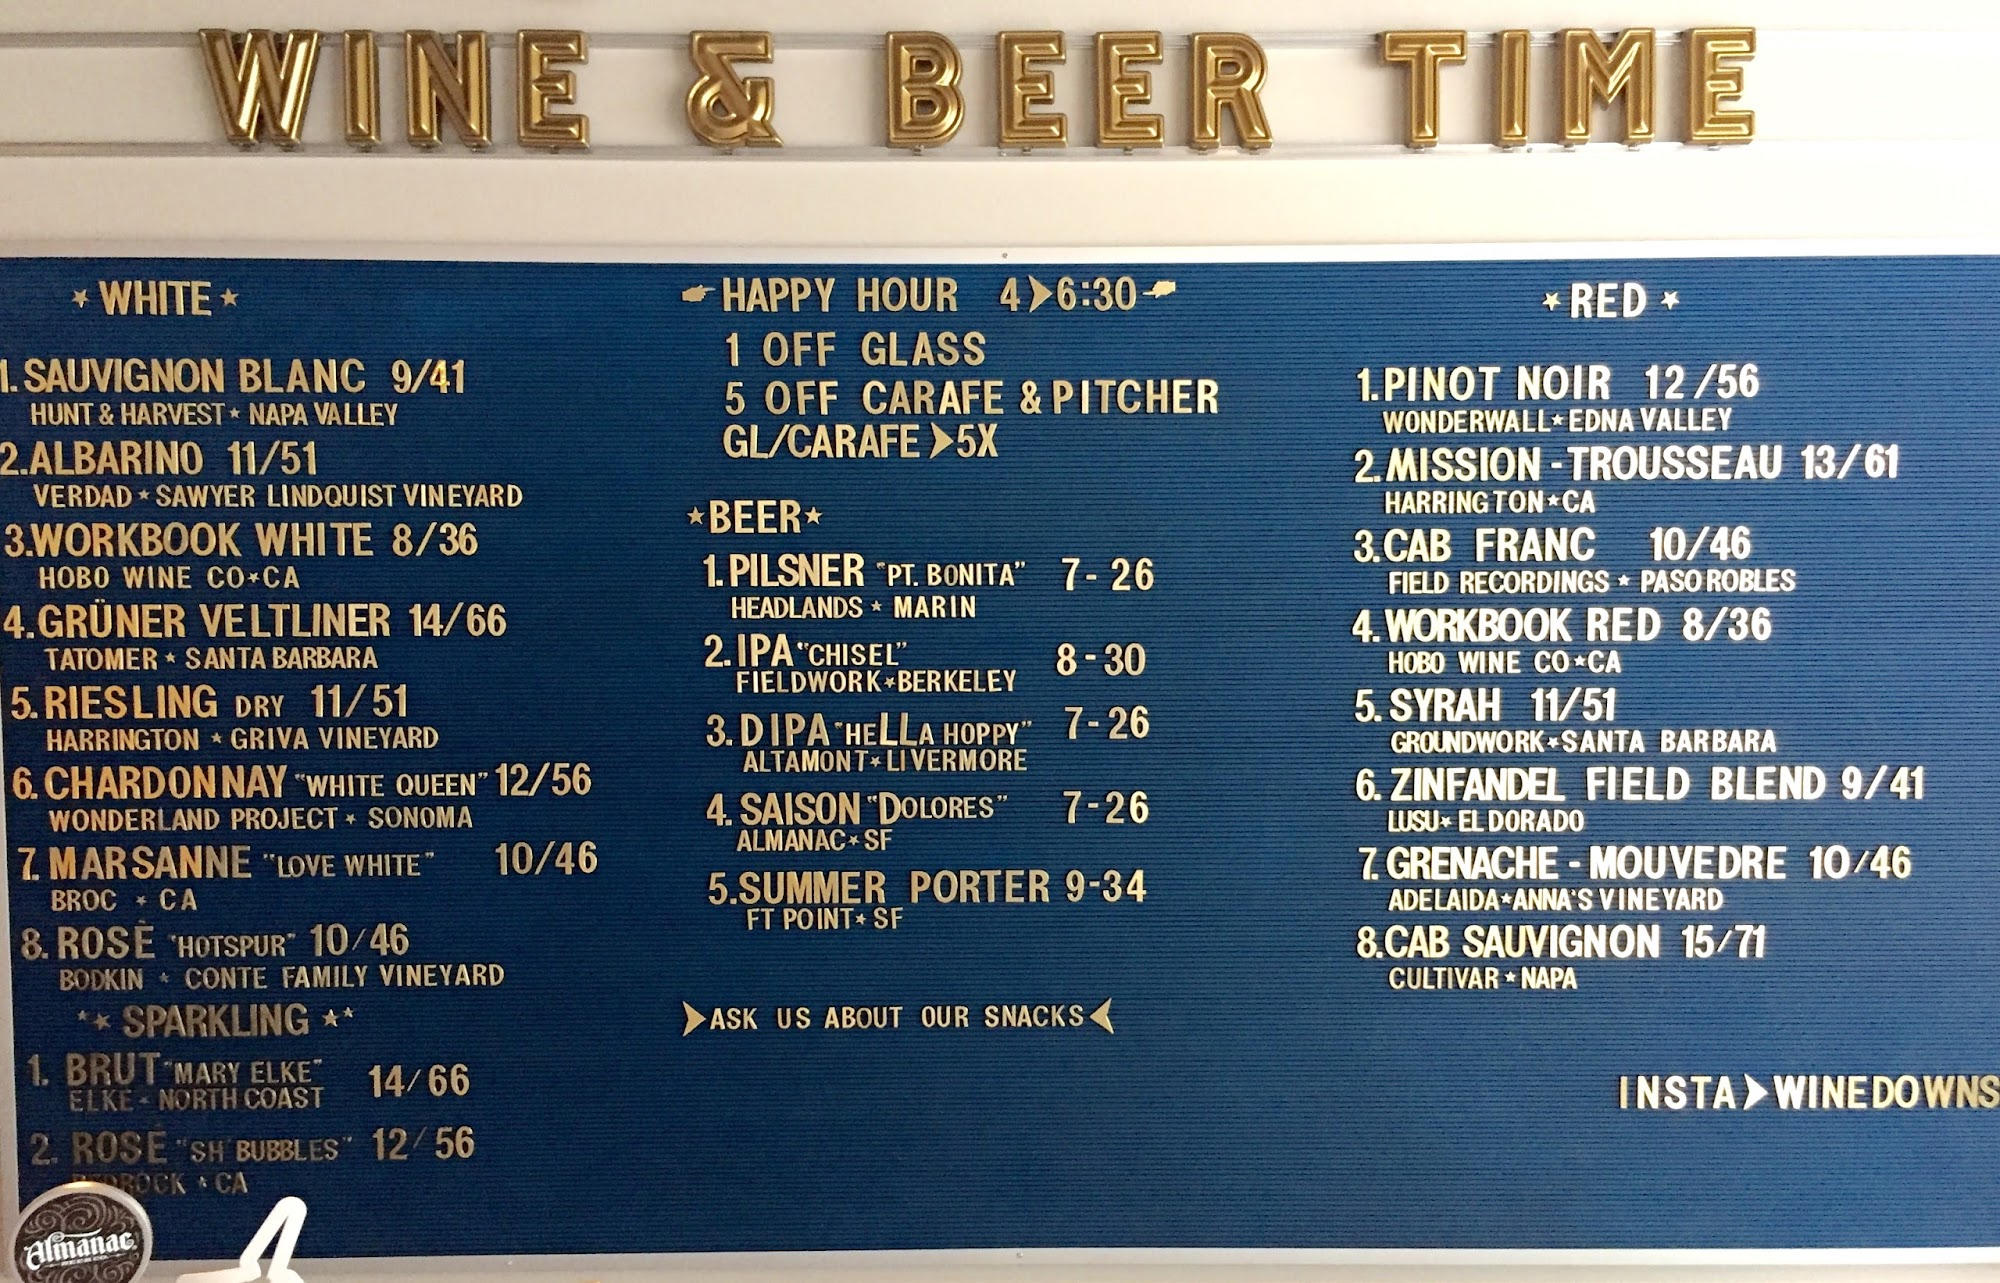 WINE & BEER TIME
WHITE
1. SAUVIGNON BLANC 9/41
HUNT & HARVEST ★ NAPA VALLEY
2. ALBARINO 11/51
VERDAD ★ SAWYER LINDQUIST VINEYARD
3. WORKBOOK WHITE 8/36
HOBO WINE CO ★ CA
4. GRÜNER VELTLINER 14/66
TATOMER ★ SANTA BARBARA
5. RIESLING DRY 11/51
HARRINGTON ★ GRIVA VINEYARD
6. CHARDONNAY "WHITE QUEEN" 12/56
WONDERLAND PROJECT ★ SONOMA
7. MARSANNE "LOVE WHITE" 10/46
BROC ★ CA
8. ROSÉ "HOTSPUR" 10/46
BODKIN ★ CONTE FAMILY VINEYARD
SPARKLING
1. BRUT "MARY ELKE" 14/66
ELKE - NORTH COAST
2. ROSÉ "SH' BUBBLES" 12/56
BEDROCK ★ CA
HAPPY HOUR 4 > 6:30
1 OFF GLASS
5 OFF CARAFE & PITCHER
GL/CARAFE > 5X
BEER
1. PILSNER "PT. BONITA" 7-26
HEADLANDS ★ MARIN
2. IPA "CHISEL" 8-30
FIELDWORK ★ BERKELEY
3. DIPA "HELLA HOPPY" 7-26
ALTAMONT ★ LIVERMORE
4. SAISON "DOLORES" 7-26
ALMANAC ★ SF
5. SUMMER PORTER 9-34
FT POINT ★ SF
>ASK US ABOUT OUR SNACKS<
RED
1. PINOT NOIR 12/56
WONDERWALL ★ EDNA VALLEY
2. MISSION - TROUSSEAU 13/61
HARRINGTON ★ CA
3. CAB FRANC 10/46
FIELD RECORDINGS ★ PASO ROBLES
4. WORKBOOK RED 8/36
HOBO WINE CO ★ CA
5. SYRAH 11/51
GROUNDWORK ★ SANTA BARBARA
6. ZINFANDEL FIELD BLEND 9/41
LUSU ★ EL DORADO
7. GRENACHE - MOUVEDRE 10/46
ADELAIDA ★ ANNA'S VINEYARD
8. CAB SAUVIGNON 15/71
CULTIVAR ★ NAPA
INSTA > WINEDOWNS
Almanac